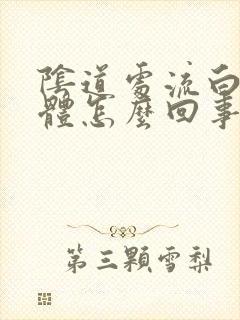 陰道處流白
體怎麼回事
第三顆雪梨